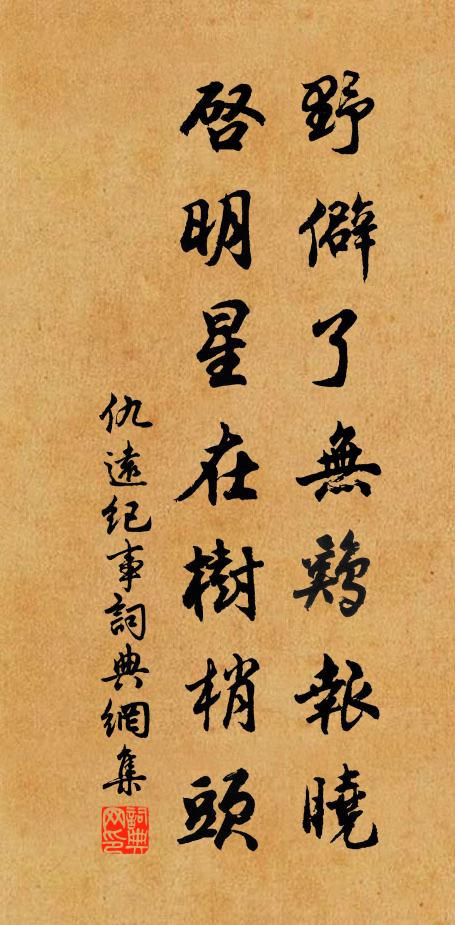 野僻了無鷄報曉
啓明星在樹梢頭
仇遠紀事詞典網集
詞典网印